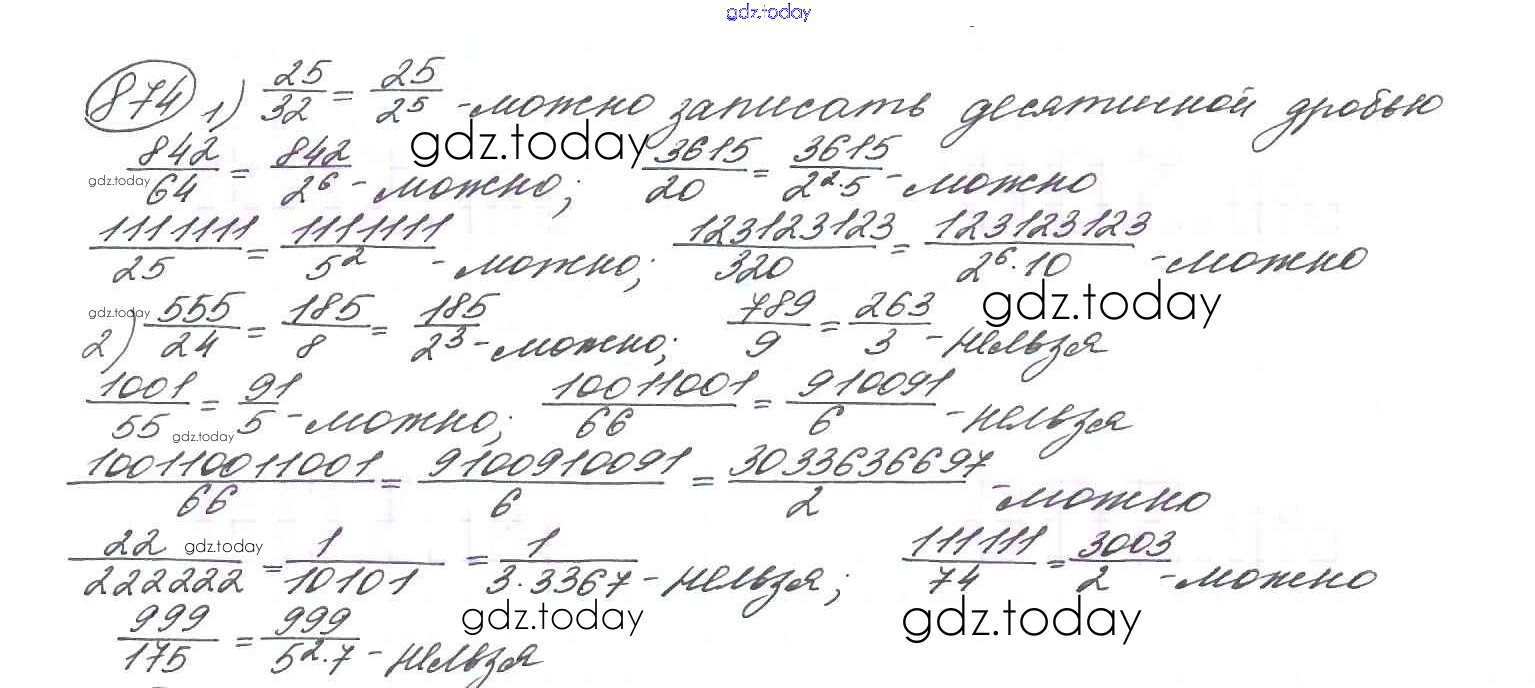 gdz.today
874 1) 25/32 = 25/2⁵ - можно записать десятичной дробью
gdz.today
842/64 = 842/2⁶ - можно; 3615/20 = 3615/2²·5 - можно
gdz.today
1111111/25 = 1111111/5² - можно; 123123123/320 = 123123123/2⁶·10 - можно
gdz.today
gdz.today
2) 555/24 = 185/8 = 185/2³ - можно; 789/9 = 263/3 - нельзя
1001/55 = 91/5 - можно; 10011001/66 = 910091/6 - нельзя
gdz.today
100110011001/66 = 9100910091/6 = 3033636697/2 - можно
22/222222 = 1/10101 = 1/3·3367 - нельзя; 111111/74 = 3003/2 - можно
gdz.today
999/175 = 999/5²·7 - нельзя
gdz.today
gdz.today